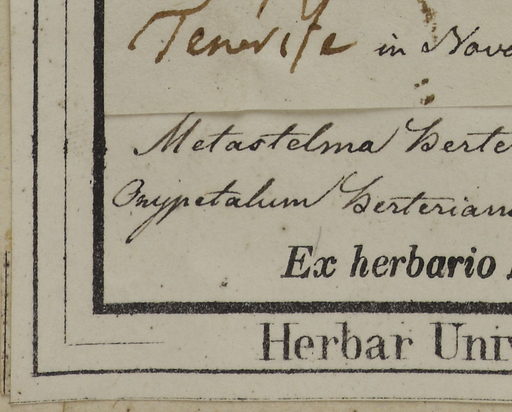 Tenerife in Nova
Metastelma Berte
Oxypetalum Berterian
Ex herbario
Herbar Univ